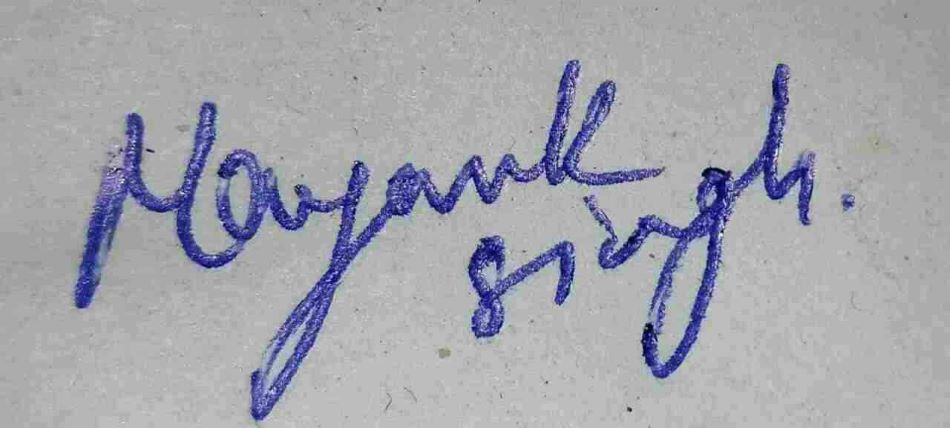 Mayank
Singh.